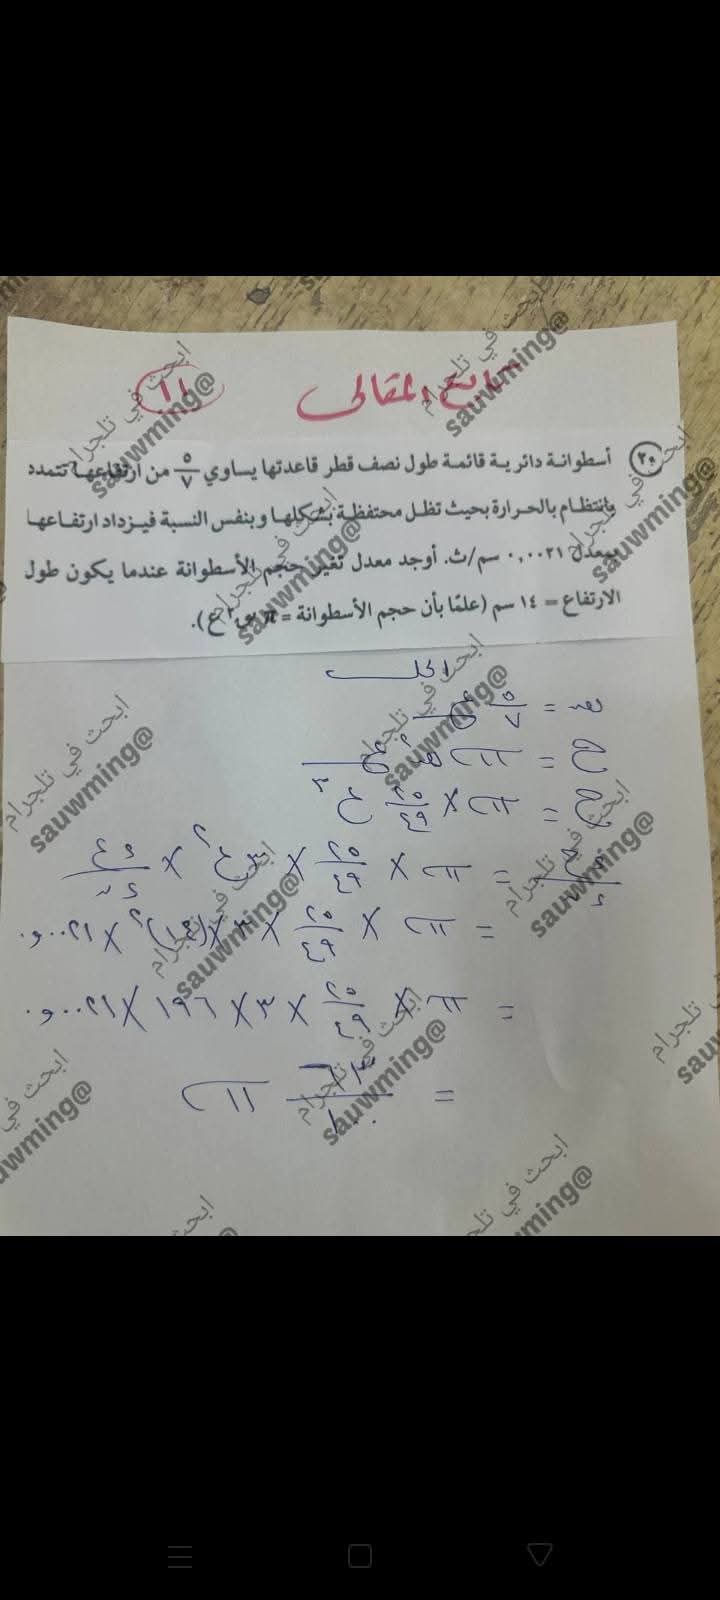 تابع المقالى (١١)
٢٠ أسطوانة دائرية قائمة طول نصف قطر قاعدتها يساوي ٥/٧ من ارتفاعها تتمدد
بانتظام بالحرارة بحيث تظل محتفظة بشكلها وبنفس النسبة فيزداد ارتفاعها
بمعدل ٠,٠٠٢١ سم/ث. أوجد معدل تغير حجم الأسطوانة عندما يكون طول
الارتفاع = ١٤ سم (علمًا بأن حجم الأسطوانة = π نق٢ ع).
الحل
نق = ٥/٧ ع
ح = π نق٢ ع
ح = π × ٢٥/٤٩ ع٣
ءح/ءن = π × ٢٥/٤٩ × ٣ع٢ × ءع/ءن
= π × ٢٥/٤٩ × ٣ × (١٤)٢ × ٠,٠٠٢١
= π × ٢٥/٤٩ × ٣ × ١٩٦ × ٠,٠٠٢١
= ٦٣/١٠٠ π
ابحث في تلجرام
@sauwming